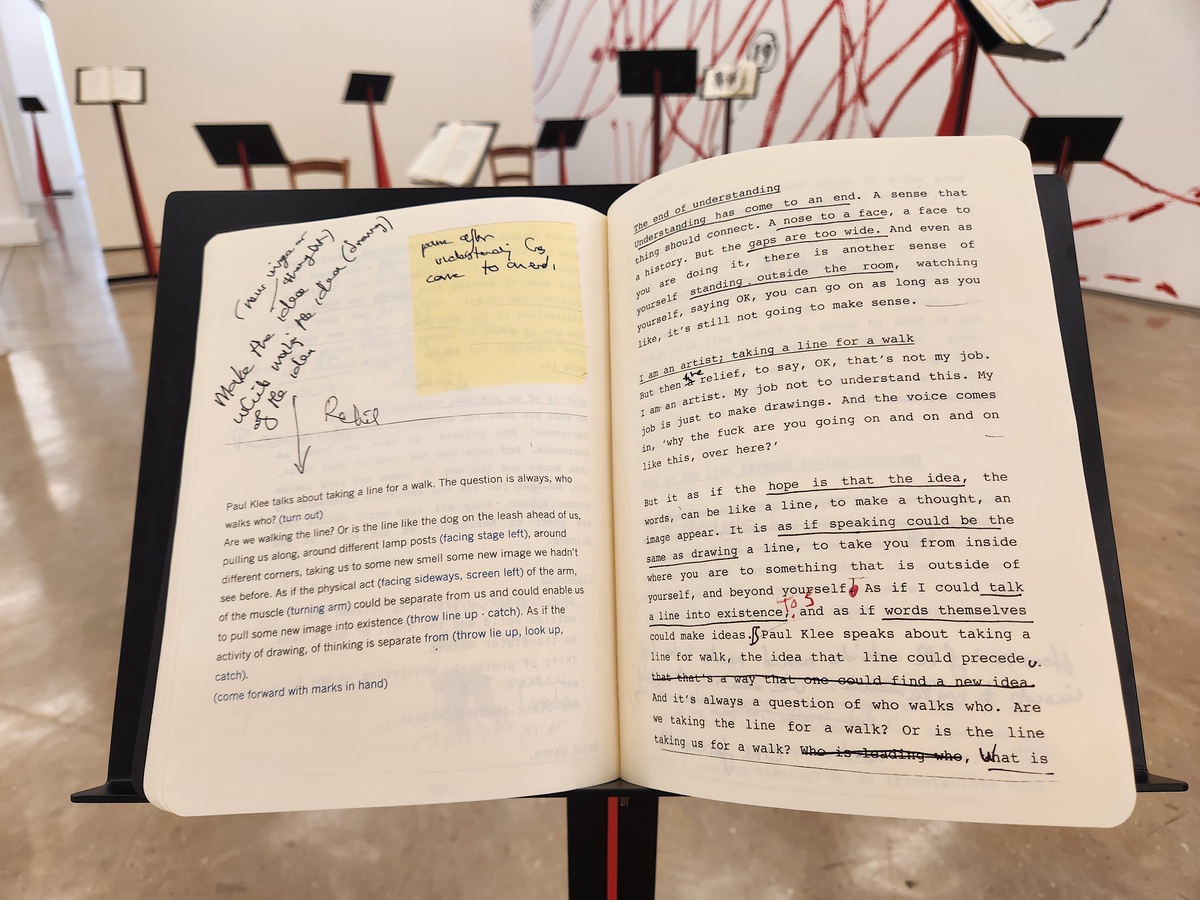 Make the idea
while making the idea (drawing)
of the idea
pause after
understanding has
come to an end,
Paul Klee talks about taking a line for a walk. The question is always, who
walks who? (turn out)
Are we walking the line? Or is the line like the dog on the leash ahead of us,
pulling us along, around different lamp posts (facing stage left), around
different corners, taking us to some new smell some new image we hadn't
see before. As if the physical act (facing sideways, screen left) of the arm,
of the muscle (turning arm) could be separate from us and could enable us
to pull some new image into existence (throw line up - catch). As if the
activity of drawing, of thinking is separate from (throw lie up, look up,
catch).
(come forward with marks in hand)
The end of understanding
Understanding has come to an end. A sense that
thing should connect. A nose to a face, a face to
a history. But the gaps are too wide. And even as
you are doing it, there is another sense of
yourself standing outside the room, watching
yourself, saying OK, you can go on as long as you
like, it's still not going to make sense.
I am an artist; taking a line for a walk
But then the relief, to say, OK, that's not my job.
I am an artist. My job not to understand this. My
job is just to make drawings. And the voice comes
in, 'why the fuck are you going on and on and on
like this, over here?'
But it as if the hope is that the idea, the
words, can be like a line, to make a thought, an
image appear. It is as if speaking could be the
same as drawing a line, to take you from inside
where you are to something that is outside of
yourself, and beyond yourself. As if I could talk
a line into existence, and as if words themselves
could make ideas. Paul Klee speaks about taking a
line for walk, the idea that line could precede.
that that's a way that one could find a new idea.
And it's always a question of who walks who. Are
we taking the line for a walk? Or is the line
taking us for a walk? Who is leading who, What is
19